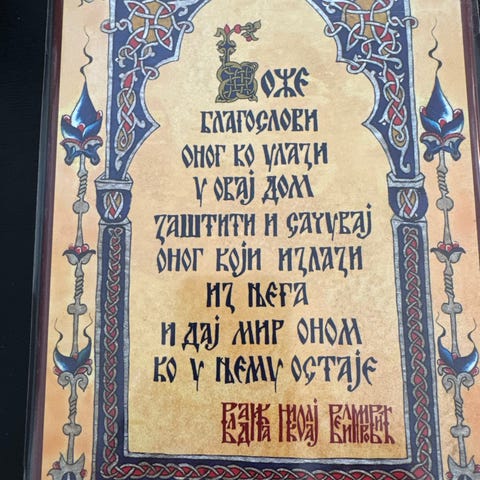 Боже
благослови
оног ко улази
у овај дом
заштити и сачувај
оног који излази
из њега
и дај мир оном
ко у њему остаје
Владика Николај Велимировић